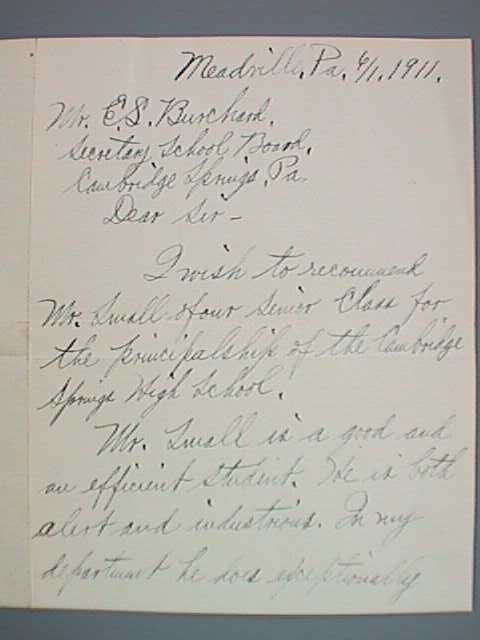 Meadville, Pa. 6/1, 1911.
Mr. E. S. Burchard,
Secretary School Board,
Cambridge Springs, Pa.
Dear Sir -
I wish to recommend
Mr. Small of our Senior Class for
the principalship of the Cambridge
Springs High School.
Mr. Small is a good and
an efficient student. He is both
alert and industrious. In my
department he does exceptionally